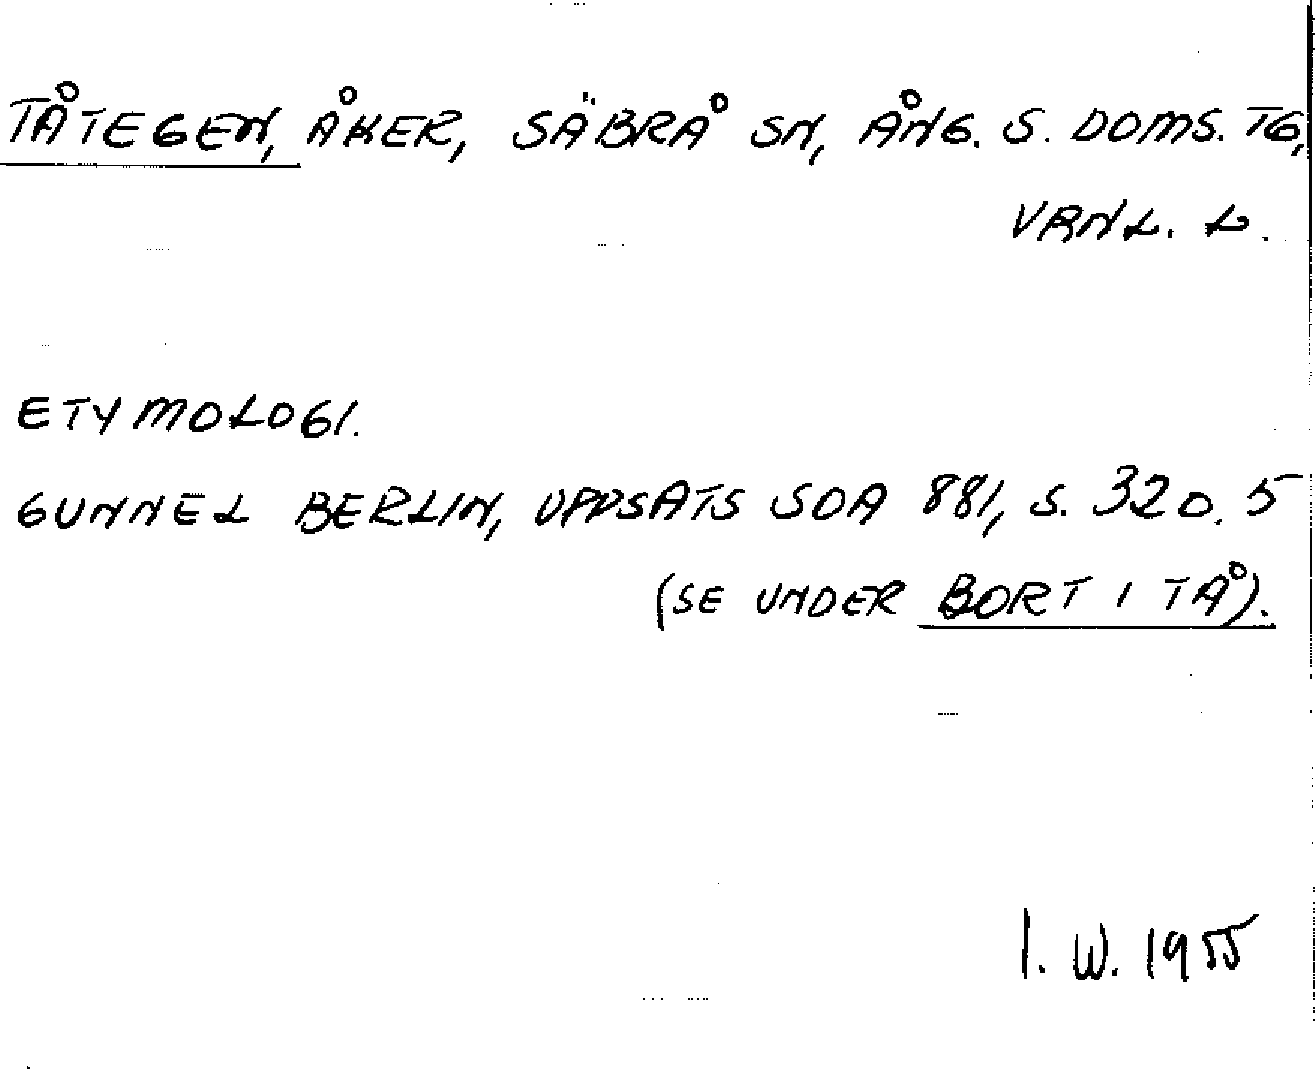 TÅTEGEN, ÅKER, SÄBRÅ SN, ÅNG. S. DOMS. TG,
VRNL. L.
ETYMOLOGI.
GUNNEL BERLIN, UPPSATS SOA 881, S. 32 O. 5
(SE UNDER BORT I TÅ).
I. W. 1955